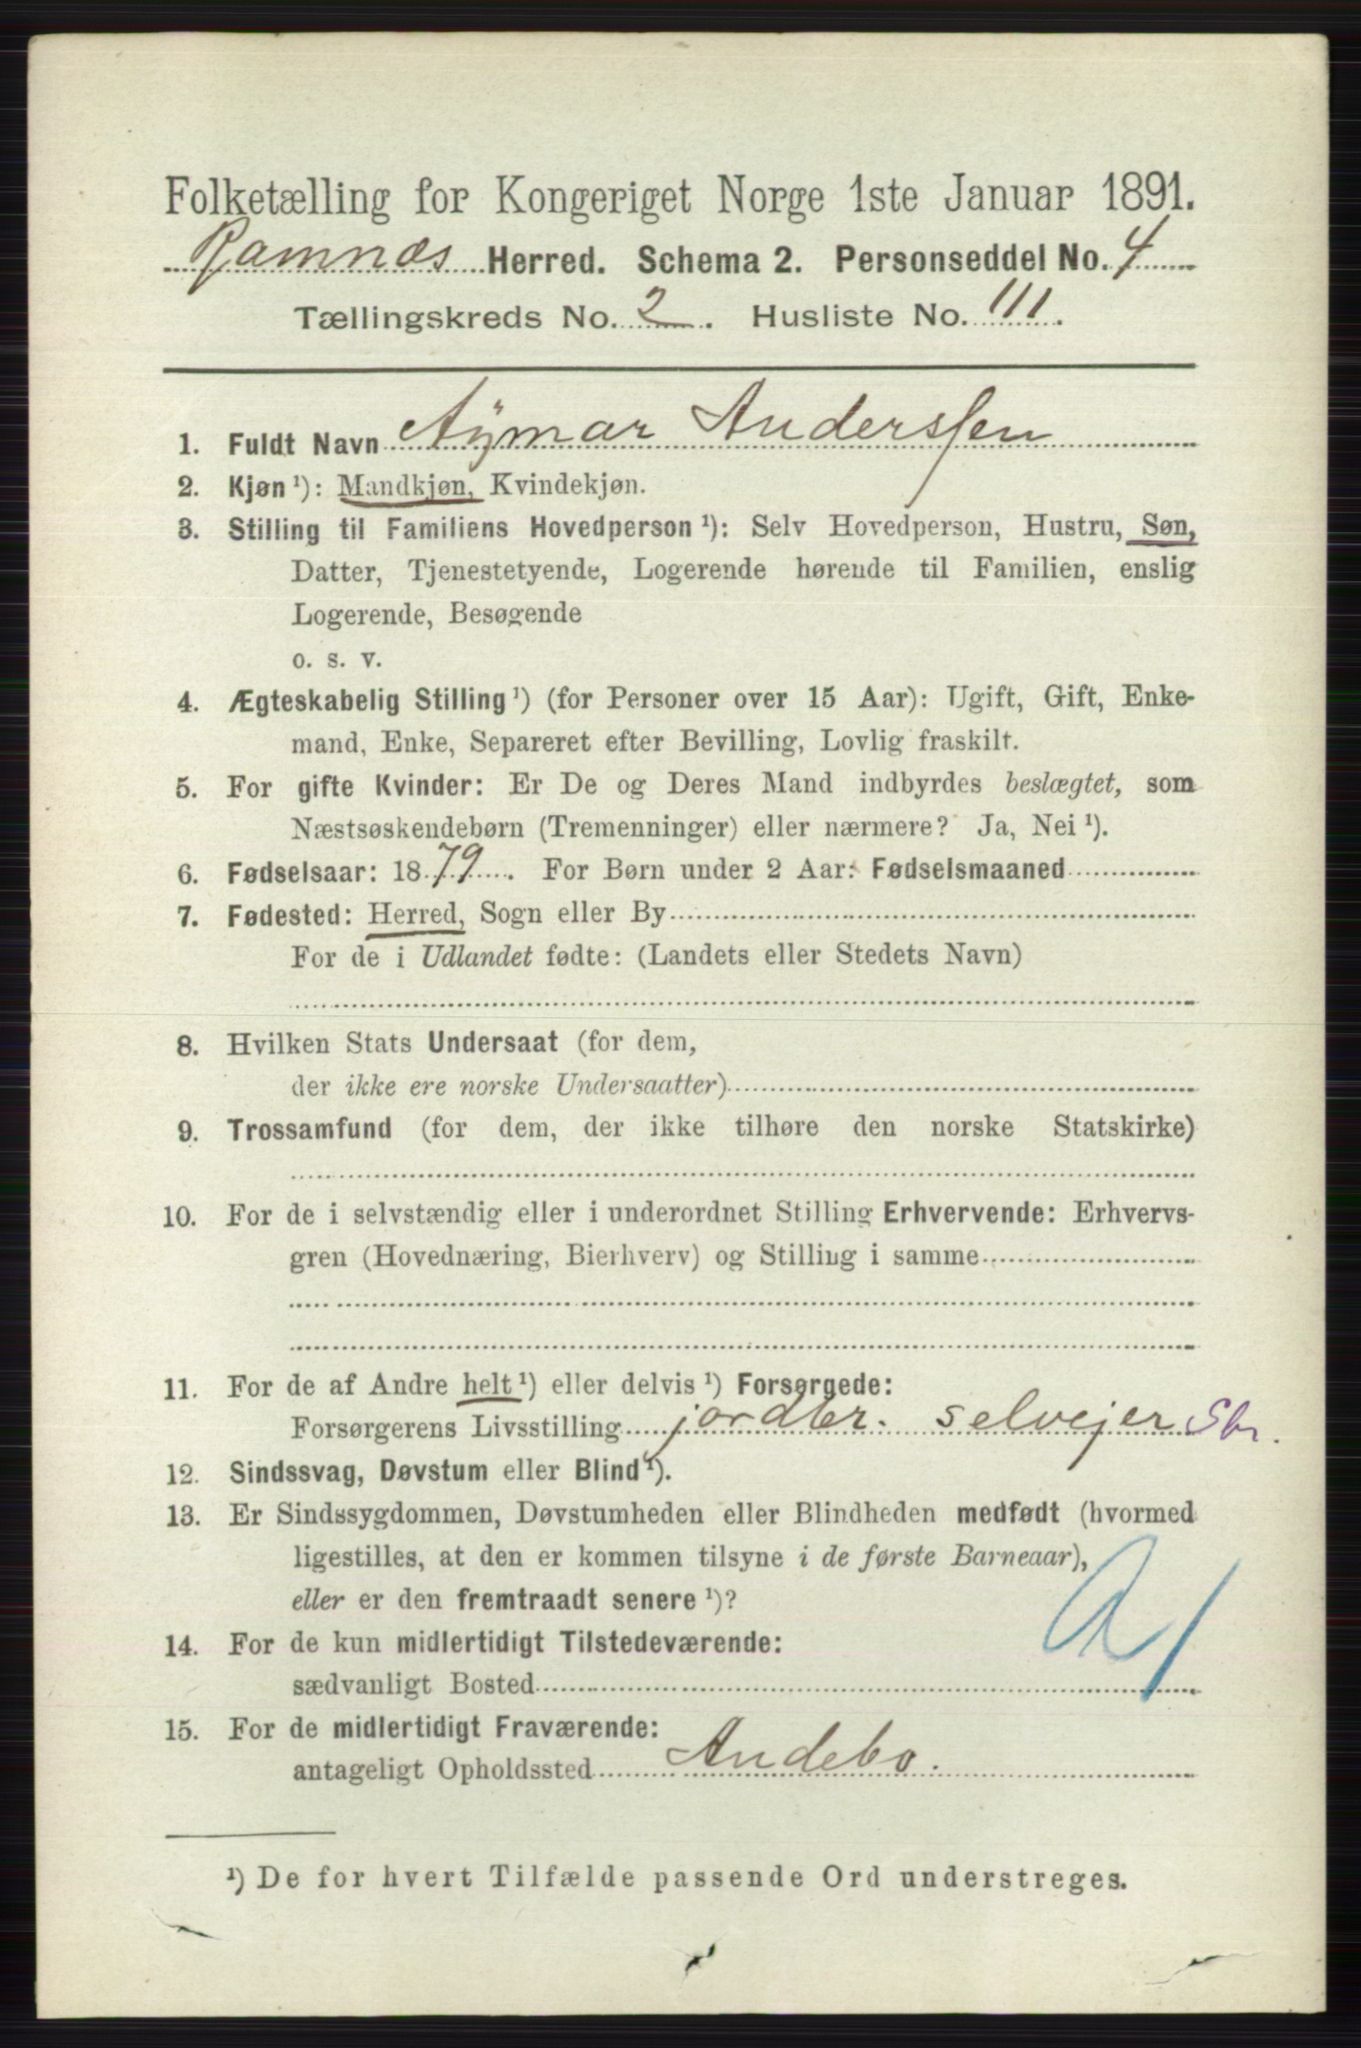 Folketælling for Kongeriget Norge 1ste Januar 1891.
Ramnæs Herred. Schema 2. Personseddel No. 4
Tællingskreds No. 2. Husliste No. 111.
1. Fuldt Navn Aymar Anderssen
2. Kjøn ¹): Mandkjøn, Kvindekjøn.
3. Stilling til Familiens Hovedperson ¹): Selv Hovedperson, Hustru, Søn,
Datter, Tjenestetyende, Logerende hørende til Familien, enslig
Logerende, Besøgende
o. s. v.
4. Ægteskabelig Stilling ¹) (for Personer over 15 Aar): Ugift, Gift, Enke-
mand, Enke, Separeret efter Bevilling, Lovlig fraskilt.
5. For gifte Kvinder: Er De og Deres Mand indbyrdes beslægtet, som
Næstsøskendebørn (Tremenninger) eller nærmere? Ja, Nei ¹).
6. Fødselsaar: 1879. For Børn under 2 Aar: Fødselsmaaned
7. Fødested: Herred, Sogn eller By
For de i Udlandet fødte: (Landets eller Stedets Navn)
8. Hvilken Stats Undersaat (for dem,
der ikke ere norske Undersaatter)
9. Trossamfund (for dem, der ikke tilhøre den norske Statskirke)
10. For de i selvstændig eller i underordnet Stilling Erhvervende: Erhvervs-
gren (Hovednæring, Bierhverv) og Stilling i samme
11. For de af Andre helt ¹) eller delvis ¹) Forsørgede:
Forsørgerens Livsstilling jordbr. selvejer Sbr.
12. Sindssvag, Døvstum eller Blind ¹).
13. Er Sindssygdommen, Døvstumheden eller Blindheden medfødt (hvormed
ligestilles, at den er kommen tilsyne i de første Barneaar),
eller er den fremtraadt senere ¹)?
14. For de kun midlertidigt Tilstedeværende:
sædvanligt Bosted
15. For de midlertidigt Fraværende:
antageligt Opholdssted Andebo.
¹) De for hvert Tilfælde passende Ord understreges.